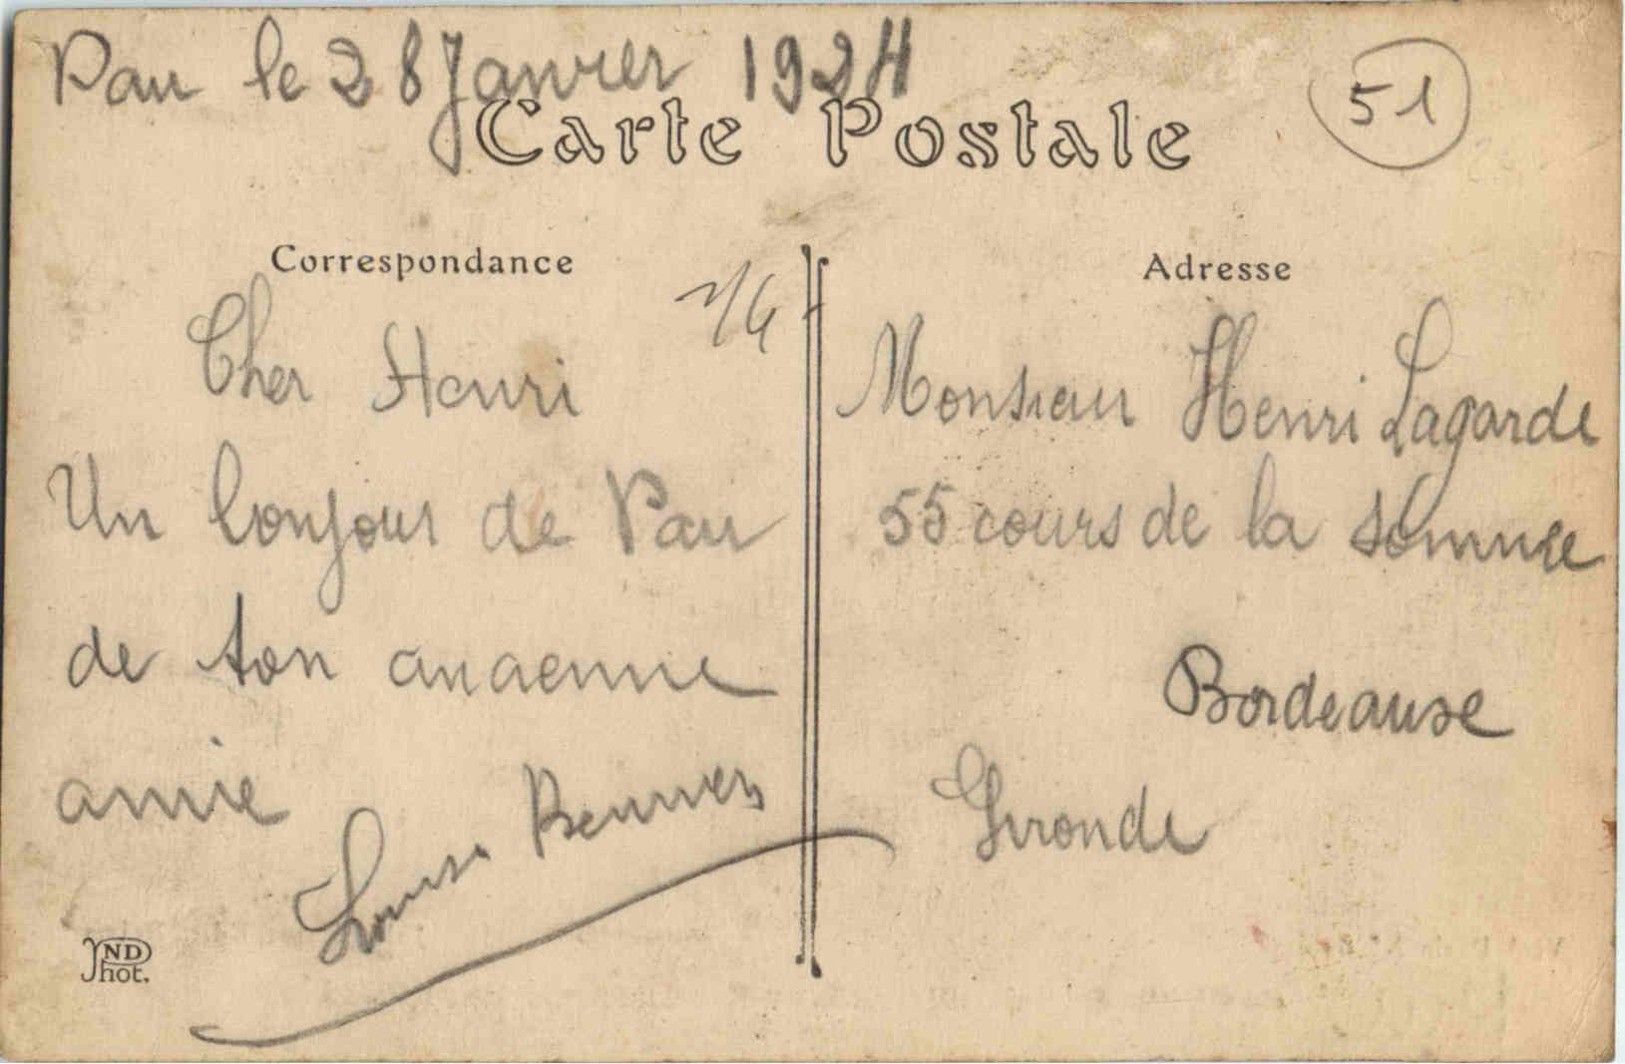 Pau le 28 Janvier 1924
51
Carte Postale
Correspondance
Cher Henri
Un bonjour de Pau
de ton ancienne
amie
Louise
ND
Phot.
Adresse
Monsieur Henri Lagarde
55 cours de la Somme
Bordeaux
Gironde